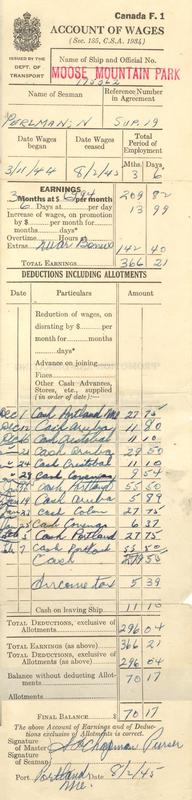 Canada F. 1
ACCOUNT OF WAGES
(Sec. 155, C.S.A. 1934)
ISSUED BY THE
DEPT. OF
TRANSPORT
Name of Ship and Official No.
MOOSE MOUNTAIN PARK
175562
Name of Seaman
Reference Number
in Agreement
PERLMAN, N
SUP. 19
Date Wages
began
Date Wages
ceased
Total
Period of
Employment
3/11/44
8/2/45
Mths. Days
3 6
EARNINGS
3 Months at $ 69.94 per month 209 82
6 Days at per day 13 99
Increase of wages, on promotion
by $ per month for
months days*
Overtime Hours @
Extras War Bonus 142 40
TOTAL EARNINGS 366 21
DEDUCTIONS INCLUDING ALLOTMENTS
Date Particulars Amount
Reduction of wages, on
disrating by $ per
month for months
days*
Advance on joining
Fines
Other Cash Advances,
Stores, etc., supplied
(in order of date):—
Dec 1 Cash Portland Me 27 75
Cash Aruba 11 80
Cash Cristobal 11 10
21 Cash Aruba 29 50
24 Cash Cristobal 11 10
28 Cash
Cash Portland 55 50
19 Cash Aruba 5 89
Cash Colon 27 75
Cash 6 37
5 Cash Portland 27 75
7 Cash Portland 55 50
Cash
Income tax 5 39
Cash on leaving Ship 11 10
TOTAL DEDUCTIONS, exclusive of
Allotments 296 04
TOTAL EARNINGS (as above) 366 21
TOTAL DEDUCTIONS, exclusive of
Allotments (as above) 296 04
Balance without deducting Allotments 70 17
Allotments
FINAL BALANCE $ 70 17
The above Account of Earnings and Deductions exclusive of Allotments is correct.
Signature
of Master Chapman Purser
Signature
of Seaman
Port Portland Me. Date 8/2/45